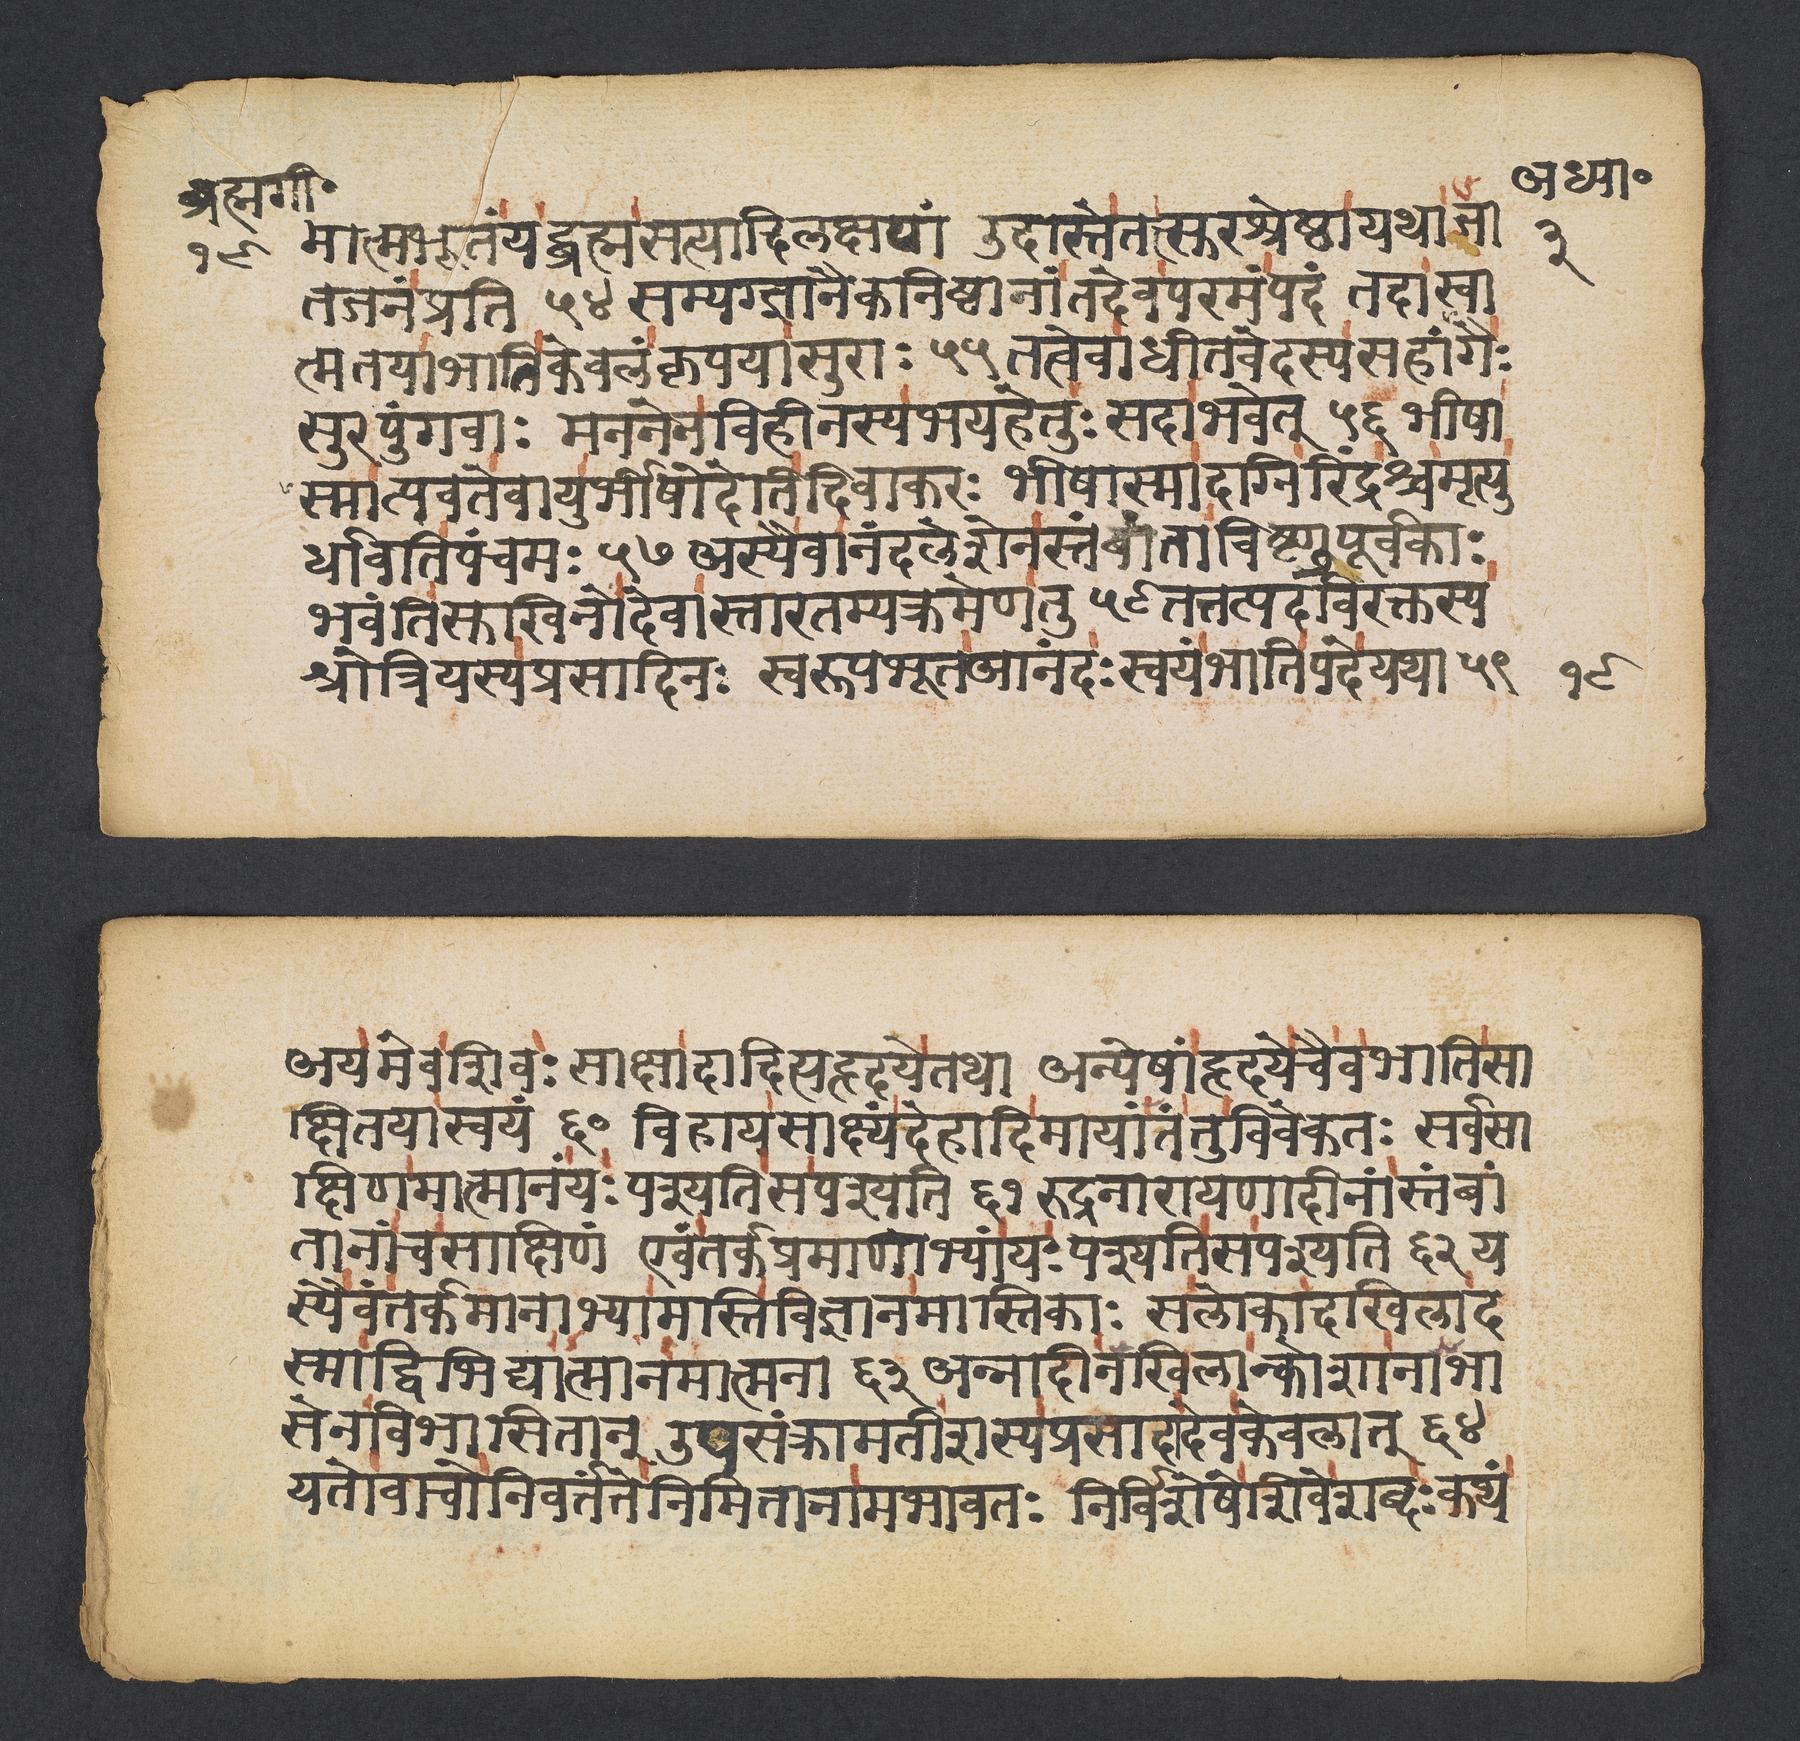 ब्रह्मगी॰
अध्या॰
१८
३
मात्मभूतंयद्ब्रह्मसत्यादिलक्षणं उदास्तेतत्सुरश्रेष्ठायथाजा
तजनंप्रति ५४ सम्यग्ज्ञानैकनिष्ठानांतदेवपरमंपदं तदास्वा
त्मतयाभातिकेवलंकृपयासुराः ५५ तत्वेवाधीतवेदस्यसहांगैः
सुरपुंगवाः मननेनविहीनस्यभयहेतुःसदाभवेत् ५६ भीषा
स्मात्पवतेवायुर्भीषोदेतिदिवाकरः भीषास्मादग्निरिंद्रश्चमृत्यु
र्धावतिपंचमः ५७ अस्यैवानंदलेशेनस्तंबांताविष्णुपूर्वकाः
भवंतिसुखिनोदेवास्तारतम्यक्रमेणतु ५८ तत्तत्पदविरक्तस्य
श्रोत्रियस्यप्रसादिनः स्वरूपभूतआनंदःस्वयंभातिपदेयथा ५९
१८
अयमेवशिवःसाक्षादादित्यहृदयेतथा अन्येषांहृदयेचैवभातिसा
क्षितयास्वयं ६० विहायसाक्ष्यंदेहादिमायांतंतुविवेकतः सर्वसा
क्षिणमात्मानंयःपश्यतिसपश्यति ६१ रुद्रनारायणादीनांस्तंबां
तानांचसाक्षिणं एवंतर्कप्रमाणाभ्यांयःपश्यतिसपश्यति ६२ य
स्यैवंतर्कमानाभ्यामास्तिविज्ञानमास्तिकाः सलोकादखिलाद
स्माद्विभिद्यात्मानमात्मना ६३ अन्नादीनखिलान्कोशानाभा
सेनविभासितान् उपसंक्रामतीशस्यप्रसादादेवकेवलात् ६४
यतोवाचोनिवर्तंतेनिमितानामभावतः निर्विशेषेशिवेशब्दःकथं